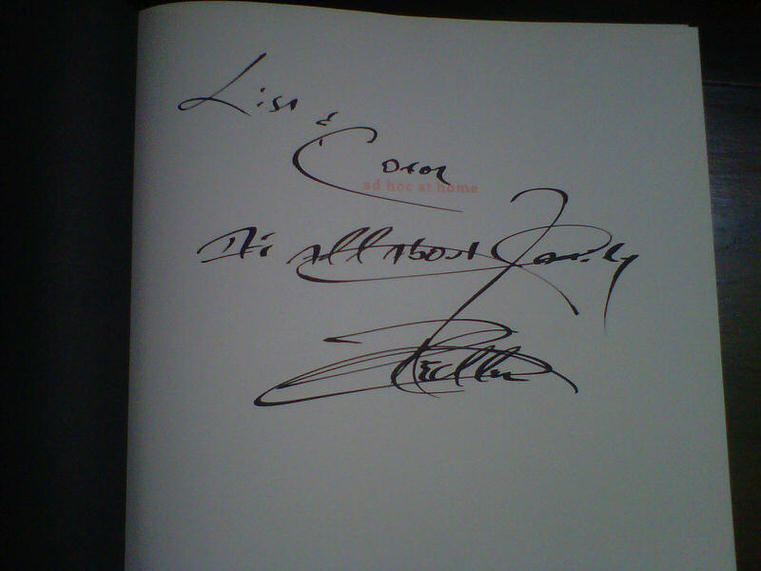 Lisa &
Coron
ad hoc at home
It's All About Family